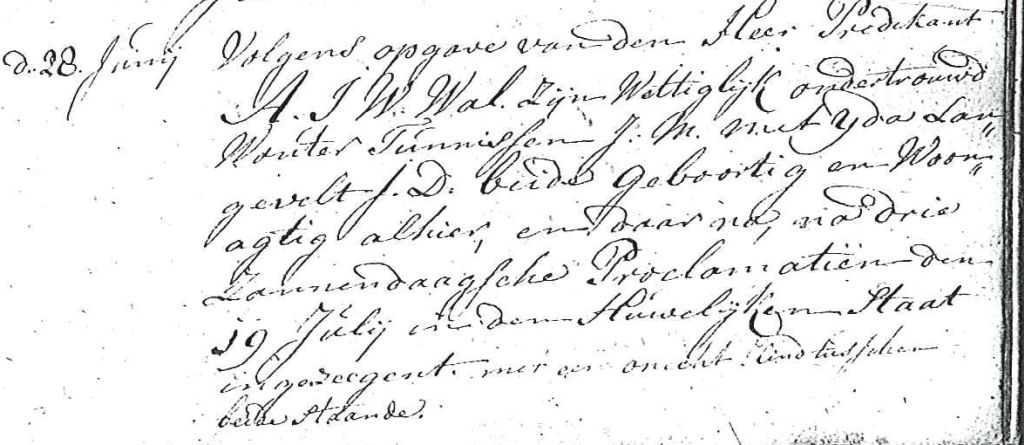 d. 28. Junij Volgens opgave van den Heer Predikant
A. J. W. Wal. Zijn Wettiglijk ondertrouwd
Wouter Tunnissen J: M. met Yda Lan„
gevelt J. D: beide Geboortig en Woon„
agtig alhier, en daar na, na drie
Zonnendaagsche Proclamatiën den
19 Julij in den Huwelijken Staat
ingezeegent. met een onecht Kind tusschen
beide Staande.